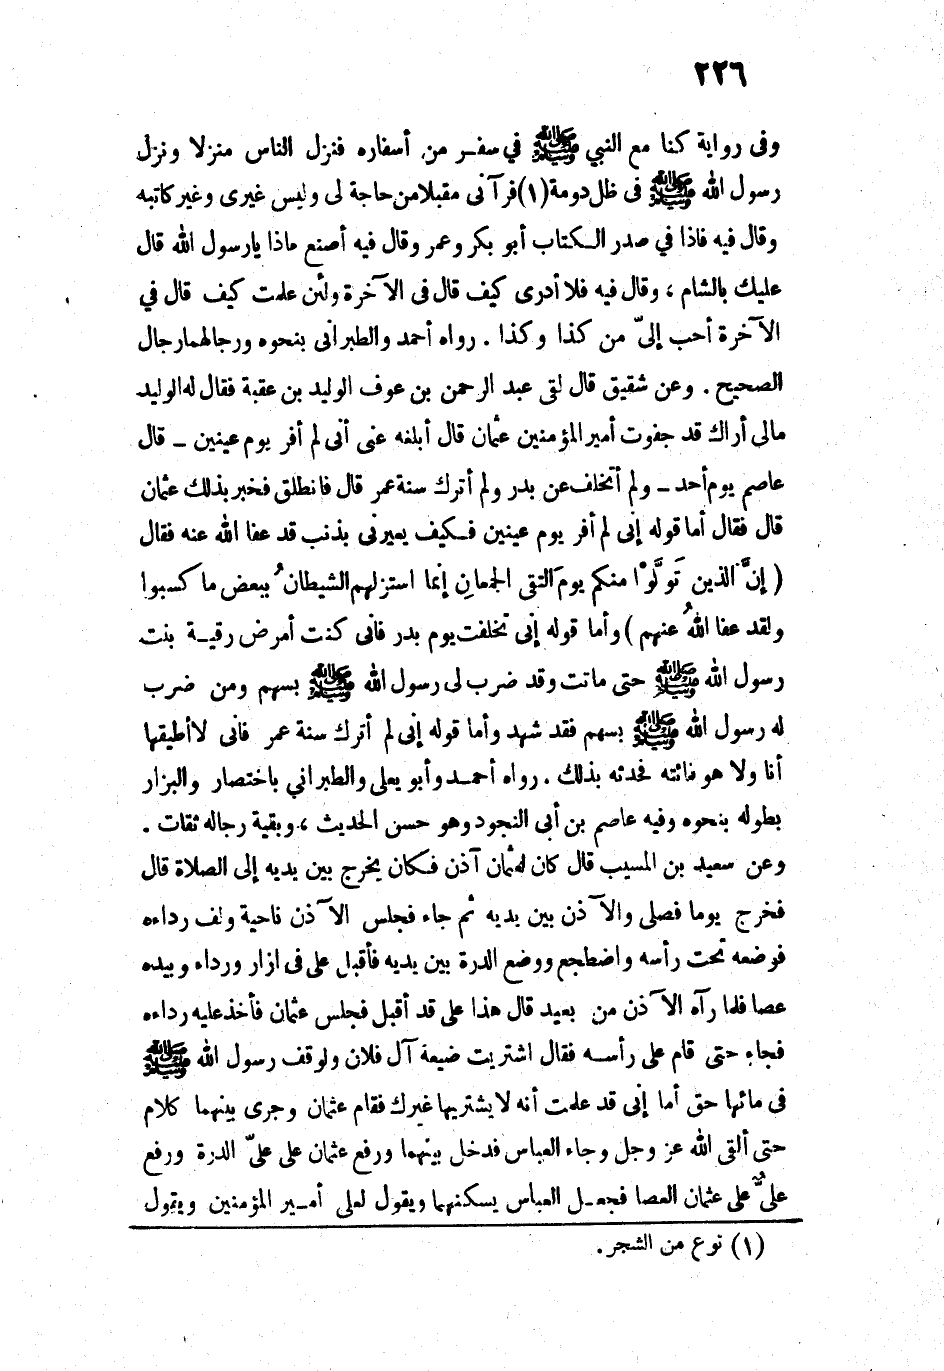 ٢٢٦
وفى رواية كنا مع النبي ﷺ في سفر من أسفاره فنزل الناس منزلا ونزل
رسول الله ﷺ فى ظل دومة (١) فرآنى مقبلا من حاجة لى وليس غيرى وغير كاتبه
وقال فيه فاذا في صدر الكتاب أبو بكر وعمر وقال فيه أصنع ماذا يارسول الله قال
عليك بالشام ، وقال فيه فلا أدرى كيف قال فى الآخرة ولئن علمت كيف قال في
الآخرة أحب إلىّ من كذا وكذا . رواه أحمد والطبرانى بنحوه ورجالهما رجال
الصحيح . وعن شقيق قال لقى عبد الرحمن بن عوف الوليد بن عقبة فقال له الوليد
مالى أراك قد جفوت أمير المؤمنين عثمان قال أبلغه عنى أنى لم أفر يوم عينين ــ قال
عاصم يوم أحد ــ ولم أتخلف عن بدر ولم أترك سنة عمر قال فانطلق فخبر بذلك عثمان
قال فقال أما قوله إنى لم أفر يوم عينين فكيف يعيرنى بذنب قد عفا الله عنه فقال
( إنَّ الذين تَولَّوْا منكم يومَ التقى الجمعانِ إنما استزلهم الشيطانُ ببعض ما كسبوا
ولقد عفا اللهُ عنهم ) وأما قوله إنى تخلفت يوم بدر فانى كنت أمرض رقية بنت
رسول الله ﷺ حتى ماتت وقد ضرب لى رسول الله ﷺ بسهم ومن ضرب
له رسول الله ﷺ بسهم فقد شهد وأما قوله إنى لم أترك سنة عمر فانى لا أطيقها
أنا ولا هو فائته فحدثه بذلك . رواه أحمد وأبو يعلى والطبراني باختصار والبزار
بطوله بنحوه وفيه عاصم بن أبى النجود وهو حسن الحديث ، وبقية رجاله ثقات .
وعن سعيد بن المسيب قال كان لعثمان آذن فكان يخرج بين يديه إلى الصلاة قال
فخرج يوما فصلى والآذن بين يديه ثم جاء فجلس الآذن ناحية ولف رداءه
فوضعه تحت رأسه واضطجع ووضع الدرة بين يديه فأقبل على فى ازار ورداء وبيده
عصا فلما رآه الآذن من بعيد قال هذا على قد أقبل فجلس عثمان فأخذ عليه رداءه
فجاء حتى قام على رأسه فقال اشتريت ضيعة آل فلان ولوقف رسول الله ﷺ
فى مائها حق أما إنى قد علمت أنه لا يشتريها غيرك فقام عثمان وجرى بينهما كلام
حتى ألقى الله عز وجل وجاء العباس فدخل بينهما ورفع عثمان على علىّ الدرة ورفع
علىٌّ على عثمان العصا فجعل العباس يسكنهما ويقول لعلى أمير المؤمنين ويقول
(١) نوع من الشجر .